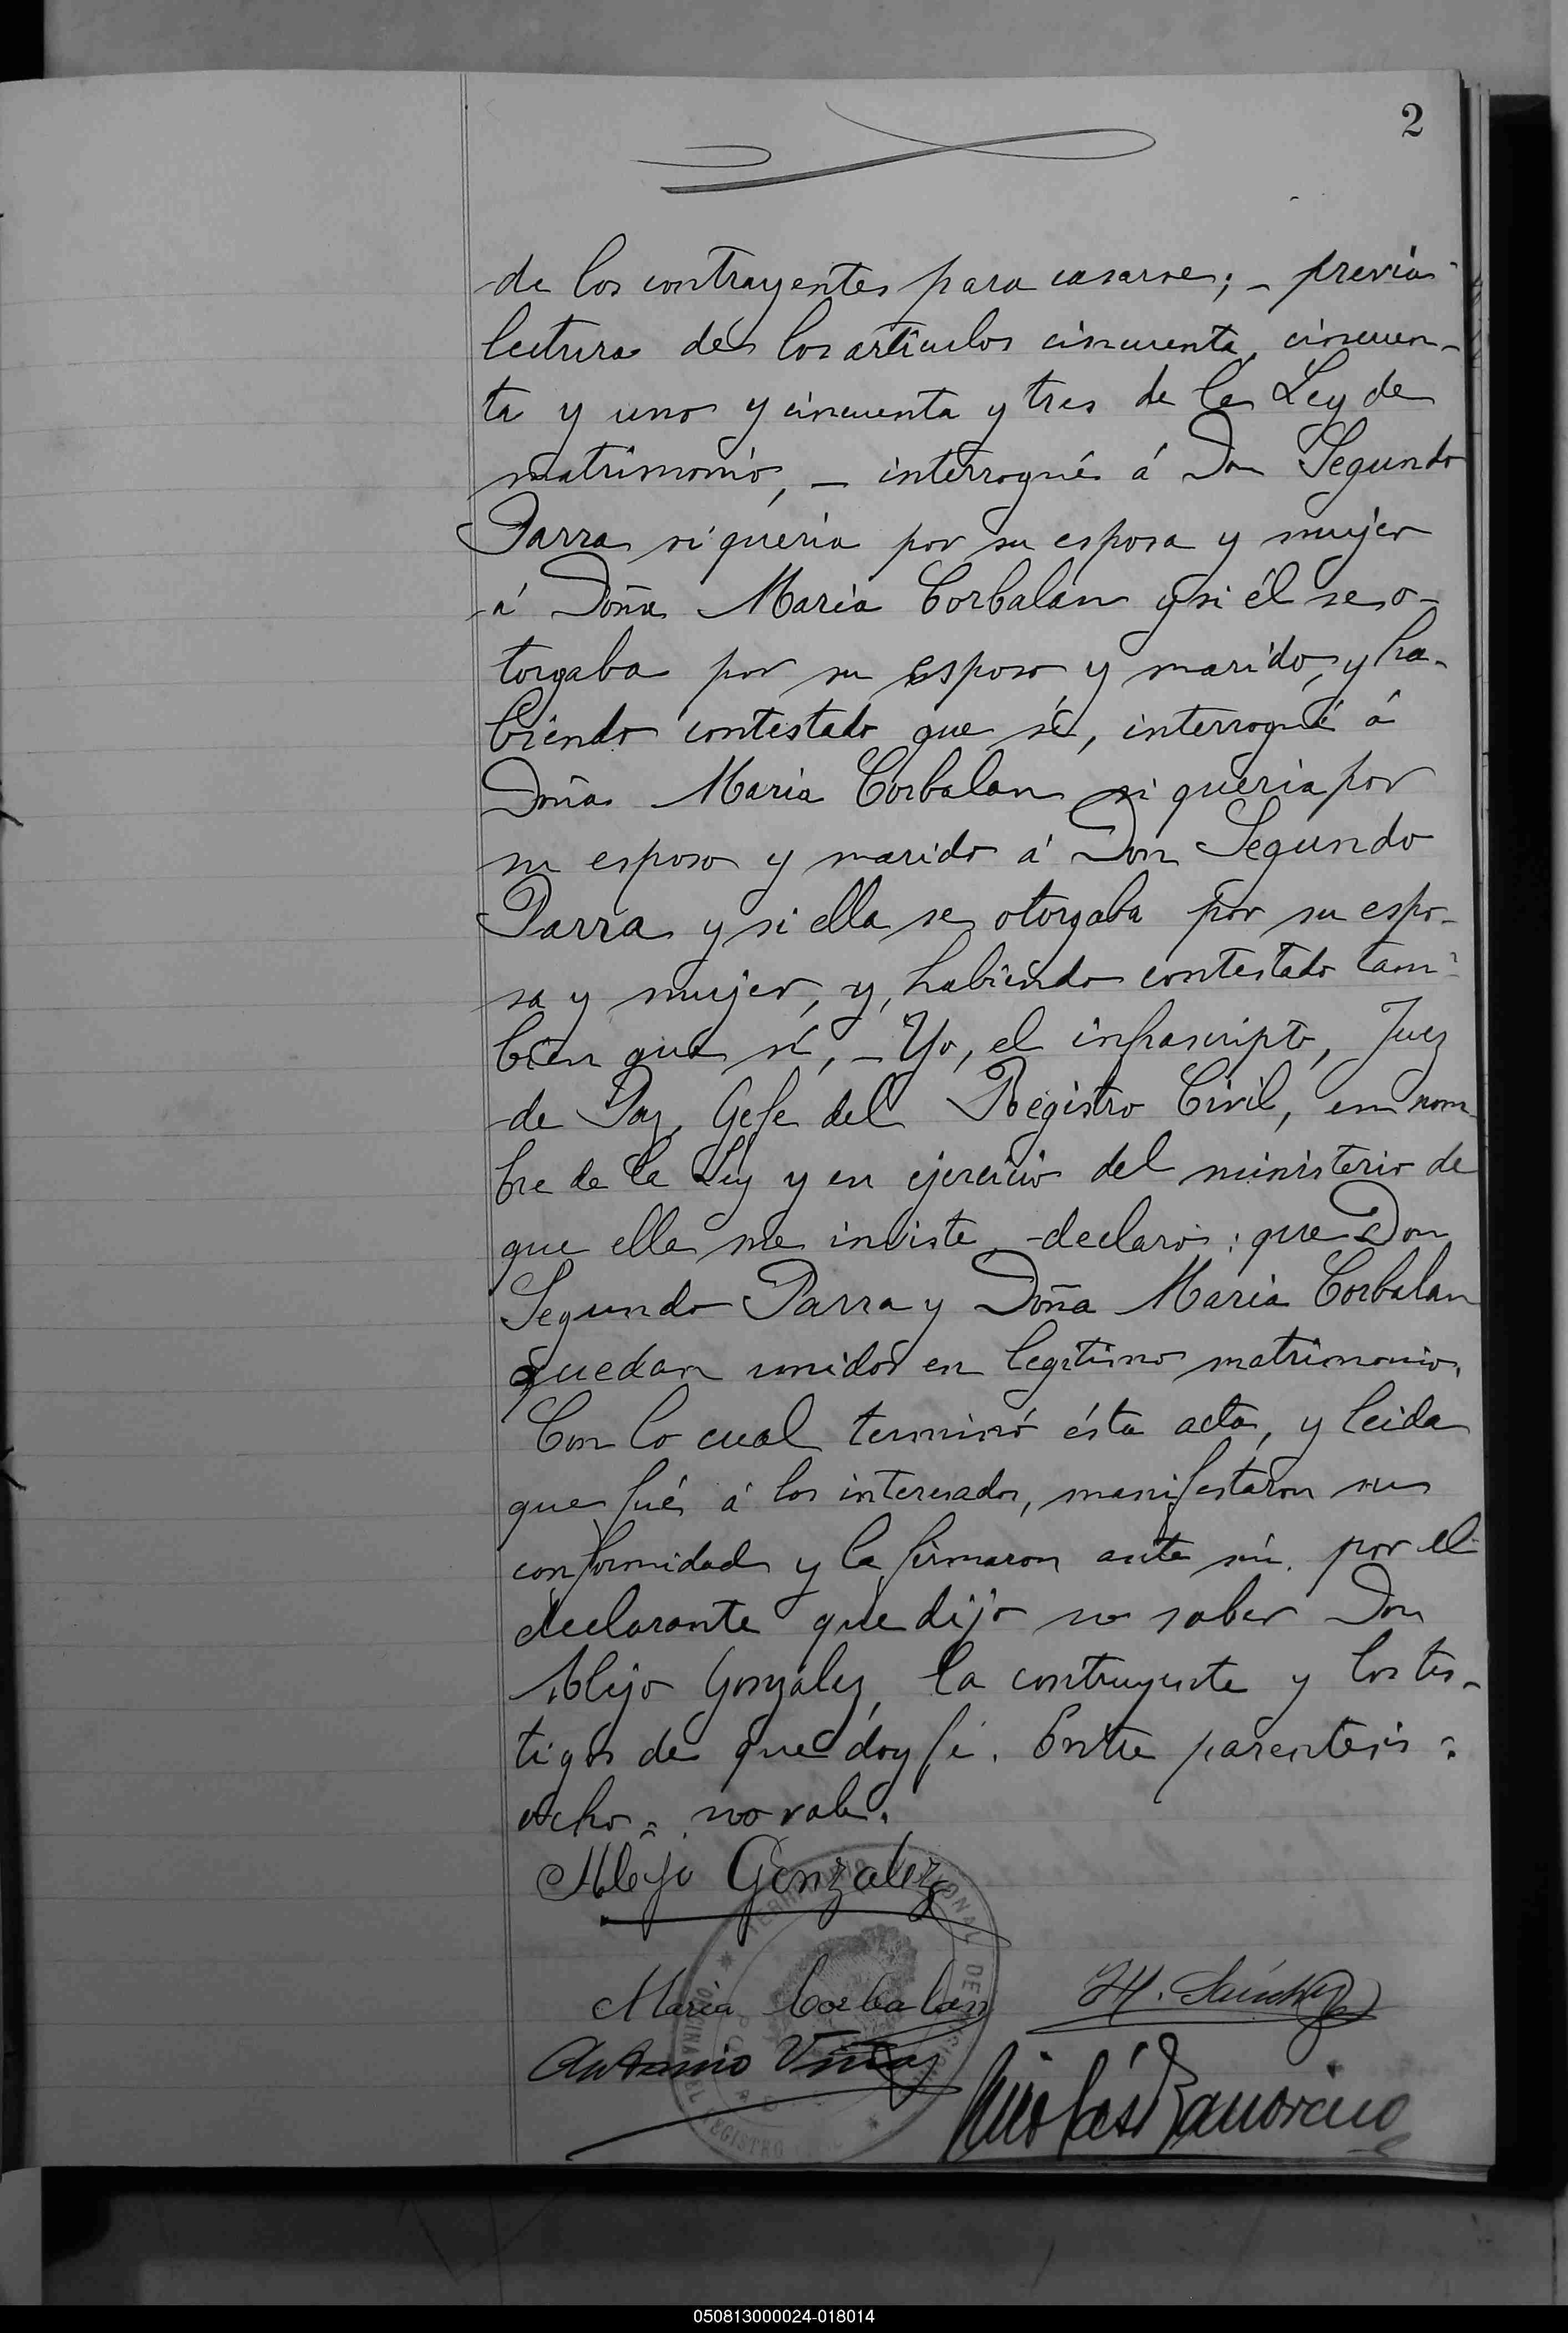 2
de los contrayentes para casarse; - previa
lectura de los artículos cincuenta, cincuen-
ta y uno y cincuenta y tres de la Ley de
matrimonio, - interrogué á Don Segundo
Parra si queria por su esposa y mujer
á Doña Maria Corbalan y si él se o-
torgaba por su esposo y marido, y ha-
biendo contestado que sí, interrogué á
Doña Maria Corbalan si queria por
su esposo y marido á Don Segundo
Parra y si ella se otorgaba por su espo-
sa y mujer, y, habiendo contestado tam-
bien que sí, - Yo, el infrascripto, Juez
de Paz, Gefe del Registro Civil, en nom
bre de la Ley y en ejercicio del ministerio de
que ella me inviste - declaro: que Don
Segundo Parra y Doña Maria Corbalan
quedan unidos en legítimo matrimonio.
Con lo cual terminó ésta acta, y leida
que fué á los interesados, manifestaron su
conformidad y la firmaron ante mí. por el
declarante que dijo no saber Don
Alejo Gonzalez, la contrayente y los tes-
tigos de que doy fé. Entre parentesis =
ocho = no vale.
Alejo Gonzalez
Maria Corbalan
H. Sanchez
Antonio
Nicolás
TERRITORIO NACIONAL DE MISIONES
OFICINA DEL REGISTRO
050813000024-018014